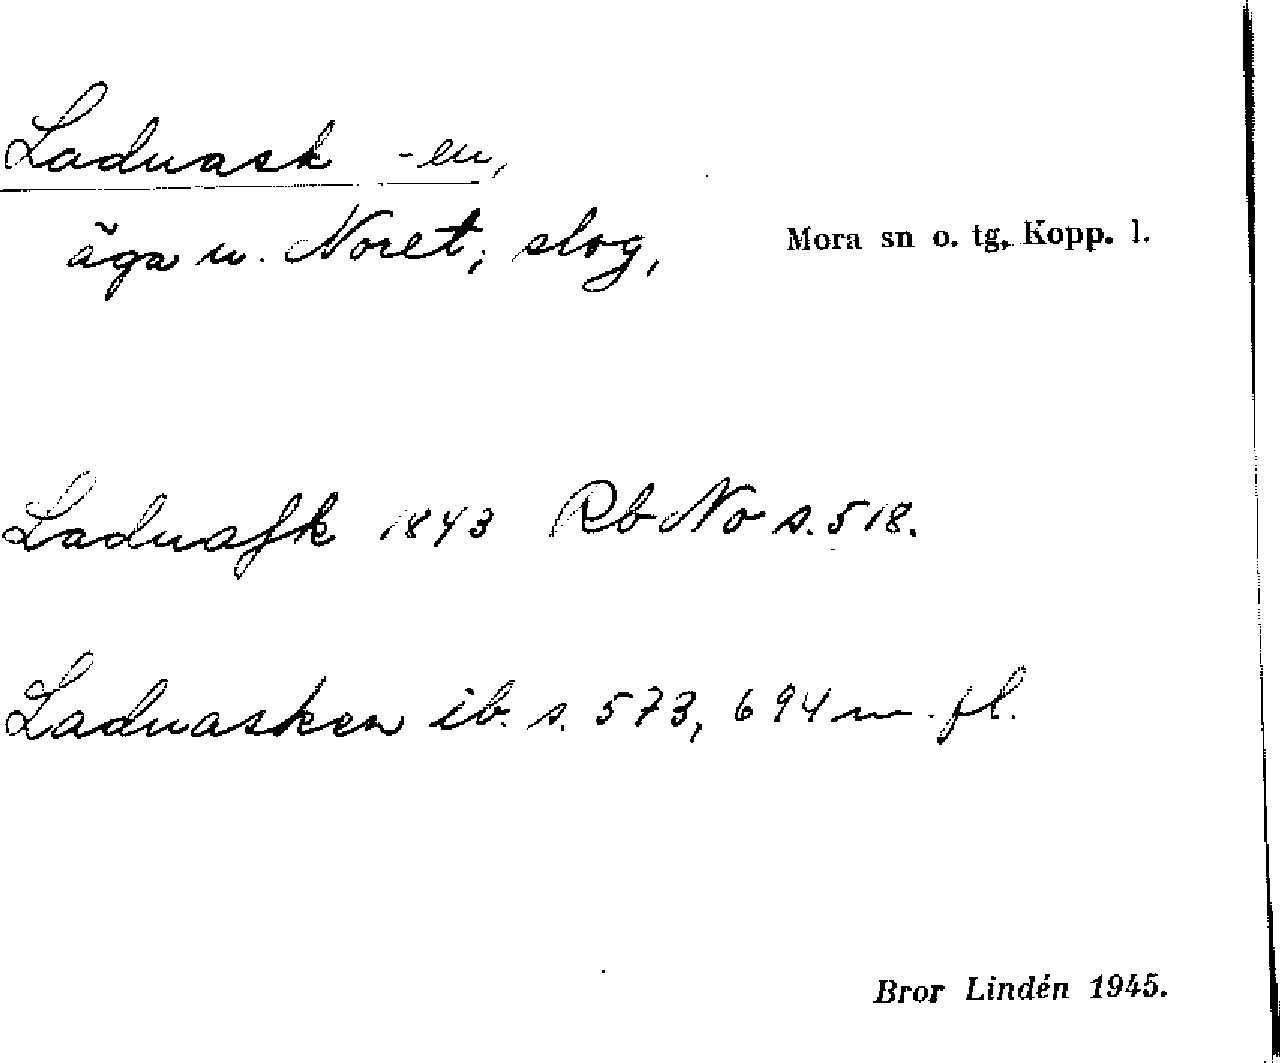 Laduask -en,
äga u. Noret, slog,
Mora sn o. tg, Kopp. l.
Laduaſk 1843 Rb No s. 518.
Laduasken ib. s. 573, 694 m. fl.
Bror Lindén 1945.